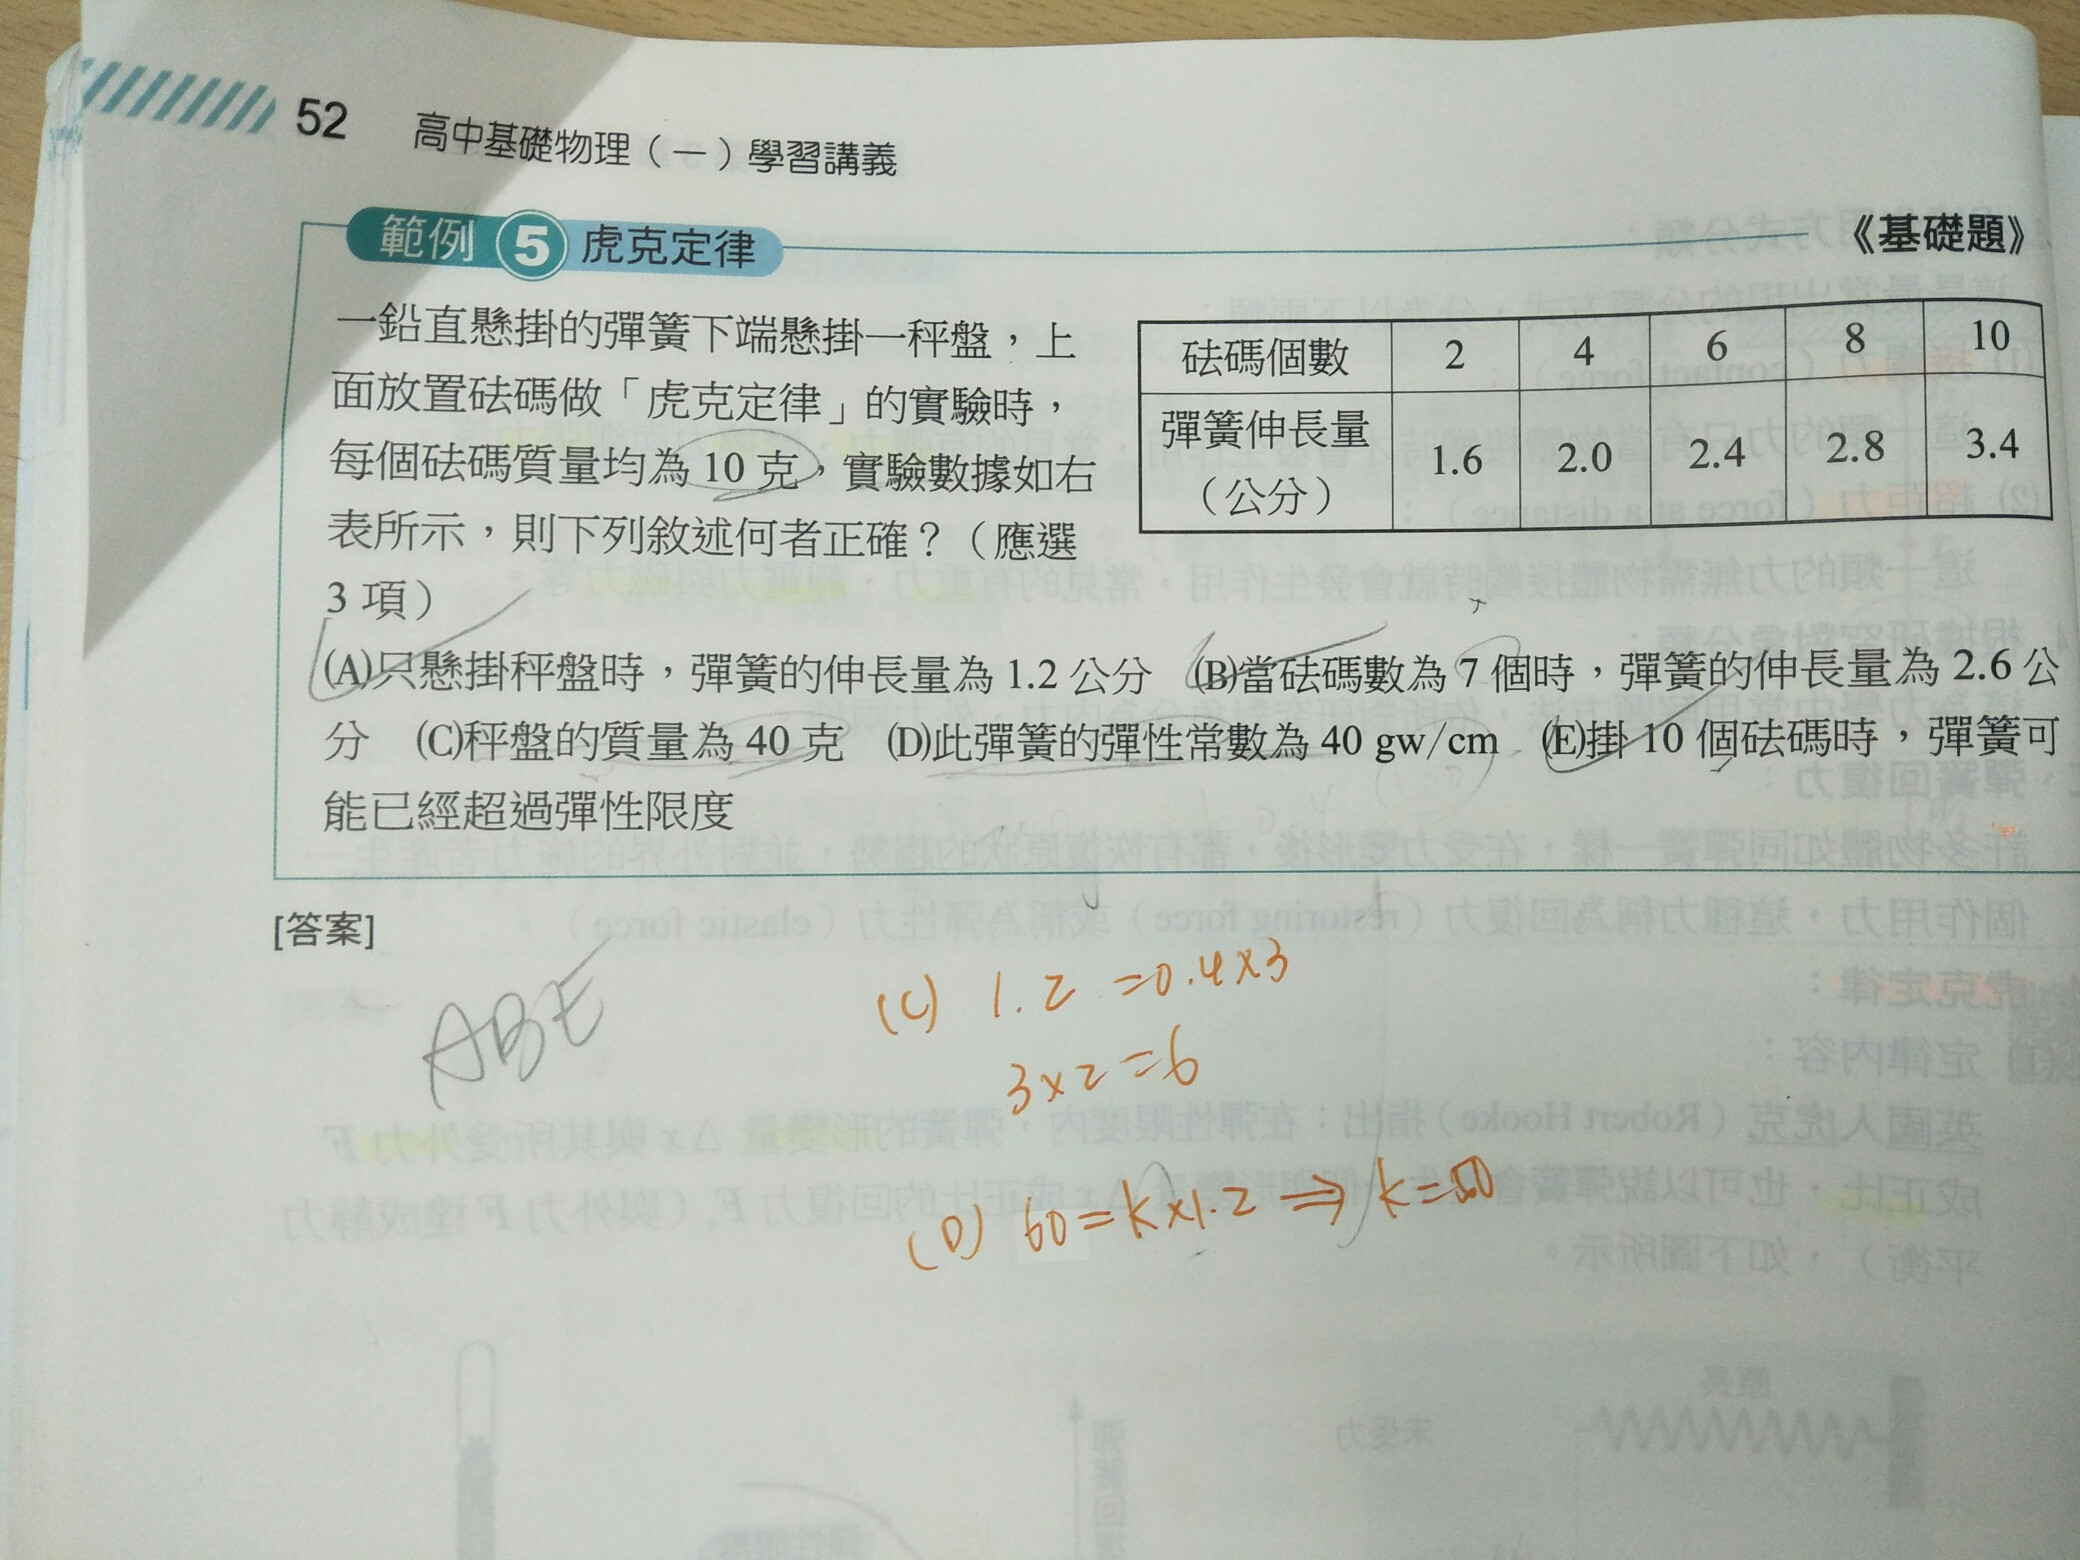 52 高中基礎物理(一)學習講義
範例 5 虎克定律
《基礎題》
一鉛直懸掛的彈簧下端懸掛一秤盤,上
面放置砝碼做「虎克定律」的實驗時,
每個砝碼質量均為 10 克,實驗數據如右
表所示,則下列敘述何者正確?(應選
3 項)
砝碼個數 2 4 6 8 10
彈簧伸長量
(公分) 1.6 2.0 2.4 2.8 3.4
(A)只懸掛秤盤時,彈簧的伸長量為 1.2 公分 (B)當砝碼數為 7 個時,彈簧的伸長量為 2.6 公
分 (C)秤盤的質量為 40 克 (D)此彈簧的彈性常數為 40 gw/cm (E)掛 10 個砝碼時,彈簧可
能已經超過彈性限度
[答案]
ABE
(C) 1.2 =0.4×3
3×2=6
(D) 60=k×1.2 ⇒ k=50